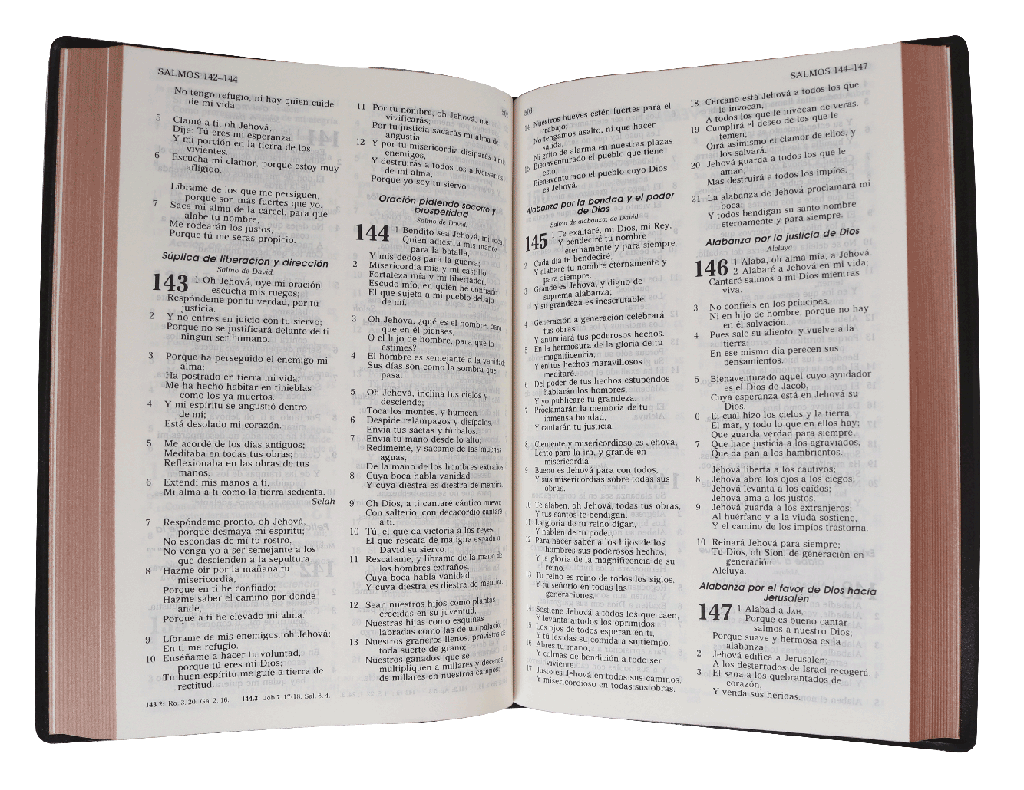 SALMOS 142–144
No tengo refugio, ni hay quien cuide
de mi vida.
5 Clamé a ti, oh Jehová;
Dije: Tú eres mi esperanza,
Y mi porción en la tierra de los
vivientes.
6 Escucha mi clamor, porque estoy muy
afligido.
Líbrame de los que me persiguen,
porque son más fuertes que yo.
7 Saca mi alma de la cárcel, para que
alabe tu nombre;
Me rodearán los justos,
Porque tú me serás propicio.
Súplica de liberación y dirección
Salmo de David.
143 1 Oh Jehová, oye mi oración,
escucha mis ruegos;
Respóndeme por tu verdad, por tu
justicia.
2 Y no entres en juicio con tu siervo;
Porque no se justificará delante de ti
ningún ser humano.
3 Porque ha perseguido el enemigo mi
alma;
Ha postrado en tierra mi vida;
Me ha hecho habitar en tinieblas
como los ya muertos.
4 Y mi espíritu se angustió dentro
de mí;
Está desolado mi corazón.
5 Me acordé de los días antiguos;
Meditaba en todas tus obras;
Reflexionaba en las obras de tus
manos.
6 Extendí mis manos a ti,
Mi alma a ti como la tierra sedienta.
Selah
7 Respóndeme pronto, oh Jehová,
porque desmaya mi espíritu;
No escondas de mí tu rostro,
No venga yo a ser semejante a los
que descienden a la sepultura.
8 Hazme oír por la mañana tu
misericordia,
Porque en ti he confiado;
Hazme saber el camino por donde
ande,
Porque a ti he elevado mi alma.
9 Líbrame de mis enemigos, oh Jehová;
En ti me refugio.
10 Enséñame a hacer tu voluntad,
porque tú eres mi Dios;
Tu buen espíritu me guíe a tierra de
rectitud.
11 Por tu nombre, oh Jehová, me
vivificarás;
Por tu justicia sacarás mi alma de
angustia.
12 Y por tu misericordia disiparás a mis
enemigos,
Y destruirás a todos los adversarios
de mi alma,
Porque yo soy tu siervo.
Oración pidiendo socorro y
prosperidad
Salmo de David.
144 1 Bendito sea Jehová, mi roca,
Quien adiestra mis manos
para la batalla,
Y mis dedos para la guerra;
2 Misericordia mía y mi castillo,
Fortaleza mía y mi libertador,
Escudo mío, en quien he confiado;
El que sujeta a mi pueblo debajo
de mí.
3 Oh Jehová, ¿qué es el hombre, para
que en él pienses,
O el hijo de hombre, para que lo
estimes?
4 El hombre es semejante a la vanidad;
Sus días son como la sombra que
pasa.
5 Oh Jehová, inclina tus cielos y
desciende;
Toca los montes, y humeen.
6 Despide relámpagos y disípalos,
Envía tus saetas y túrbalos.
7 Envía tu mano desde lo alto;
Redímeme, y sácame de las muchas
aguas,
De la mano de los hombres extraños,
8 Cuya boca habla vanidad,
Y cuya diestra es diestra de mentira.
9 Oh Dios, a ti cantaré cántico nuevo;
Con salterio, con decacordio cantaré
a ti.
10 Tú, el que da victoria a los reyes,
El que rescata de maligna espada a
David su siervo.
11 Rescátame, y líbrame de la mano de
los hombres extraños,
Cuya boca habla vanidad,
Y cuya diestra es diestra de mentira.
12 Sean nuestros hijos como plantas
crecidas en su juventud,
Nuestras hijas como esquinas
labradas como las de un palacio;
13 Nuestros graneros llenos, provistos de
toda suerte de grano;
Nuestros ganados, que se
multipliquen a millares y decenas
de millares en nuestros campos;
143.2: Ro. 3. 20; Gá. 2. 16.
SALMOS 144–147
14 Nuestros bueyes estén fuertes para el
trabajo;
No tengamos asalto, ni que hacer
salida,
Ni grito de alarma en nuestras plazas.
15 Bienaventurado el pueblo que tiene
esto;
Bienaventurado el pueblo cuyo Dios
es Jehová.
Alabanza por la bondad y el poder
de Dios
Salmo de alabanza; de David.
145 1 Te exaltaré, mi Dios, mi Rey,
Y bendeciré tu nombre
eternamente y para siempre.
2 Cada día te bendeciré,
Y alabaré tu nombre eternamente y
para siempre.
3 Grande es Jehová, y digno de
suprema alabanza;
Y su grandeza es inescrutable.
4 Generación a generación celebrará
tus obras,
Y anunciará tus poderosos hechos.
5 En la hermosura de la gloria de tu
magnificencia,
Y en tus hechos maravillosos
meditaré.
6 Del poder de tus hechos estupendos
hablarán los hombres,
Y yo publicaré tu grandeza.
7 Proclamarán la memoria de tu
inmensa bondad,
Y cantarán tu justicia.
8 Clemente y misericordioso es Jehová,
Lento para la ira, y grande en
misericordia.
9 Bueno es Jehová para con todos,
Y sus misericordias sobre todas sus
obras.
10 Te alaben, oh Jehová, todas tus obras,
Y tus santos te bendigan.
11 La gloria de tu reino digan,
Y hablen de tu poder,
12 Para hacer saber a los hijos de los
hombres sus poderosos hechos,
Y la gloria de la magnificencia de su
reino.
13 Tu reino es reino de todos los siglos,
Y tu señorío en todas las
generaciones.
14 Sostiene Jehová a todos los que caen,
Y levanta a todos los oprimidos.
15 Los ojos de todos esperan en ti,
Y tú les das su comida a su tiempo.
16 Abres tu mano,
Y colmas de bendición a todo ser
viviente.
17 Justo es Jehová en todos sus caminos,
Y misericordioso en todas sus obras.
18 Cercano está Jehová a todos los que
le invocan,
A todos los que le invocan de veras.
19 Cumplirá el deseo de los que le
temen;
Oirá asimismo el clamor de ellos, y
los salvará.
20 Jehová guarda a todos los que le
aman,
Mas destruirá a todos los impíos.
21 La alabanza de Jehová proclamará mi
boca;
Y todos bendigan su santo nombre
eternamente y para siempre.
Alabanza por la justicia de Dios
Aleluya.
146 1 Alaba, oh alma mía, a Jehová.
2 Alabaré a Jehová en mi vida;
Cantaré salmos a mi Dios mientras
viva.
3 No confiéis en los príncipes,
Ni en hijo de hombre, porque no hay
en él salvación.
4 Pues sale su aliento, y vuelve a la
tierra;
En ese mismo día perecen sus
pensamientos.
5 Bienaventurado aquel cuyo ayudador
es el Dios de Jacob,
Cuya esperanza está en Jehová su
Dios,
6 El cual hizo los cielos y la tierra,
El mar, y todo lo que en ellos hay;
Que guarda verdad para siempre,
7 Que hace justicia a los agraviados,
Que da pan a los hambrientos.
Jehová liberta a los cautivos;
8 Jehová abre los ojos a los ciegos;
Jehová levanta a los caídos;
Jehová ama a los justos.
9 Jehová guarda a los extranjeros;
Al huérfano y a la viuda sostiene,
Y el camino de los impíos trastorna.
10 Reinará Jehová para siempre;
Tu Dios, oh Sion, de generación en
generación.
Aleluya.
Alabanza por el favor de Dios hacia
Jerusalén
147 1 Alabad a JAH,
Porque es bueno cantar
salmos a nuestro Dios;
Porque suave y hermosa es la
alabanza.
2 Jehová edifica a Jerusalén;
A los desterrados de Israel recogerá.
3 El sana a los quebrantados de
corazón,
Y venda sus heridas.